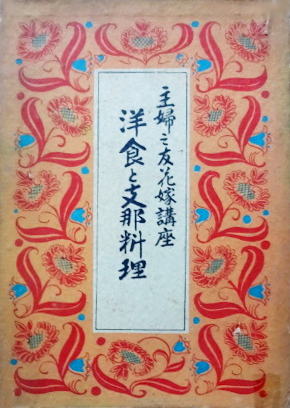 主婦之友花嫁講座
洋食と支那料理